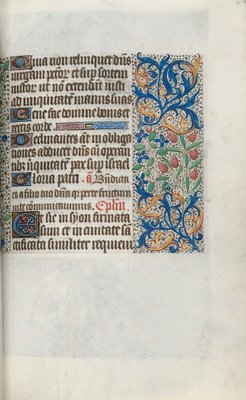 Quia non relinquet dns
uirgam pctor et sup sortem
iustor ut no extendāt iusti
ad iniquitatē manus suas
Bene fac domine bonis et
rectis corde
Declinantes aūt in obliga
tiones adducet dns cū operan
tib; iniquitatē pax sup israel
Gloria patri. a Bndicta
et a filio tuo dna q; p te fructum
vite communicauimus. Cplm
Et sic in syon firmata
sum et in ciuitate sā
ctificata similiter requieui